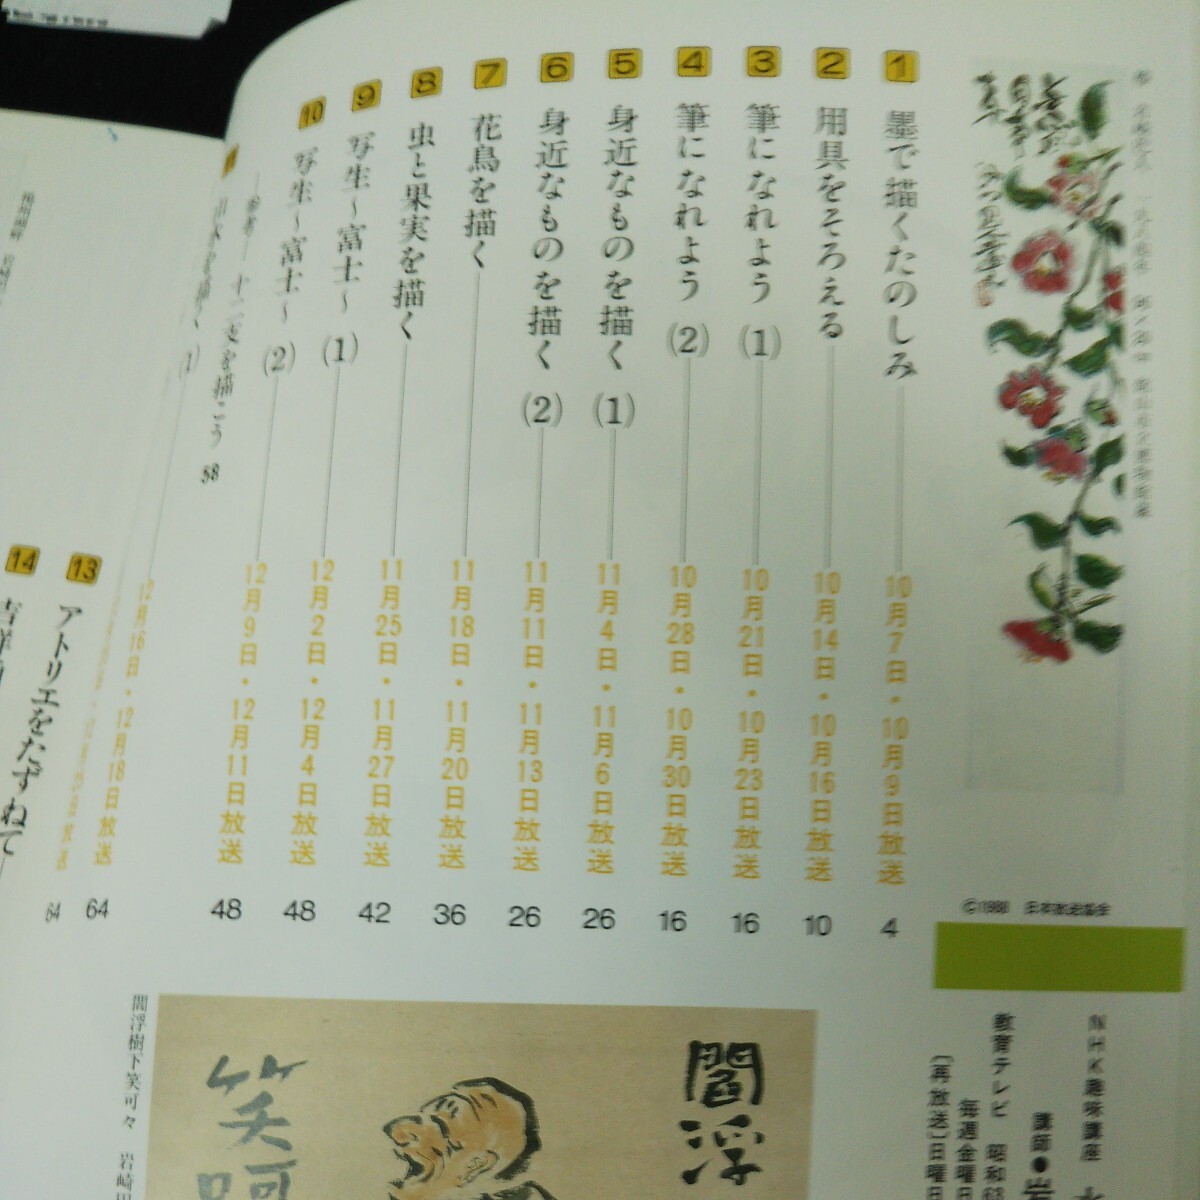 1 墨で描くたのしみ 10月7日・10月9日放送 4
2 用具をそろえる 10月14日・10月16日放送 10
3 筆になれよう(1) 10月21日・10月23日放送 16
4 筆になれよう(2) 10月28日・10月30日放送 16
5 身近なものを描く(1) 11月4日・11月6日放送 26
6 身近なものを描く(2) 11月11日・11月13日放送 26
7 花鳥を描く 11月18日・11月20日放送 36
8 虫と果実を描く 11月25日・11月27日放送 42
9 写生〜富士〜(1) 12月2日・12月4日放送 48
10 写生〜富士〜(2) 12月9日・12月11日放送 48
―参考― 十二支を描こう 58
(1) 12月16日・12月18日放送 64
64
13 アトリエをたずねて
14
©1988 日本放送協会
NHK趣味講座
講師●岩
教育テレビ 昭和63
毎週金曜日
〔再放送〕日曜日
閻浮樹下笑可々 岩崎巴
閻浮
笑呵